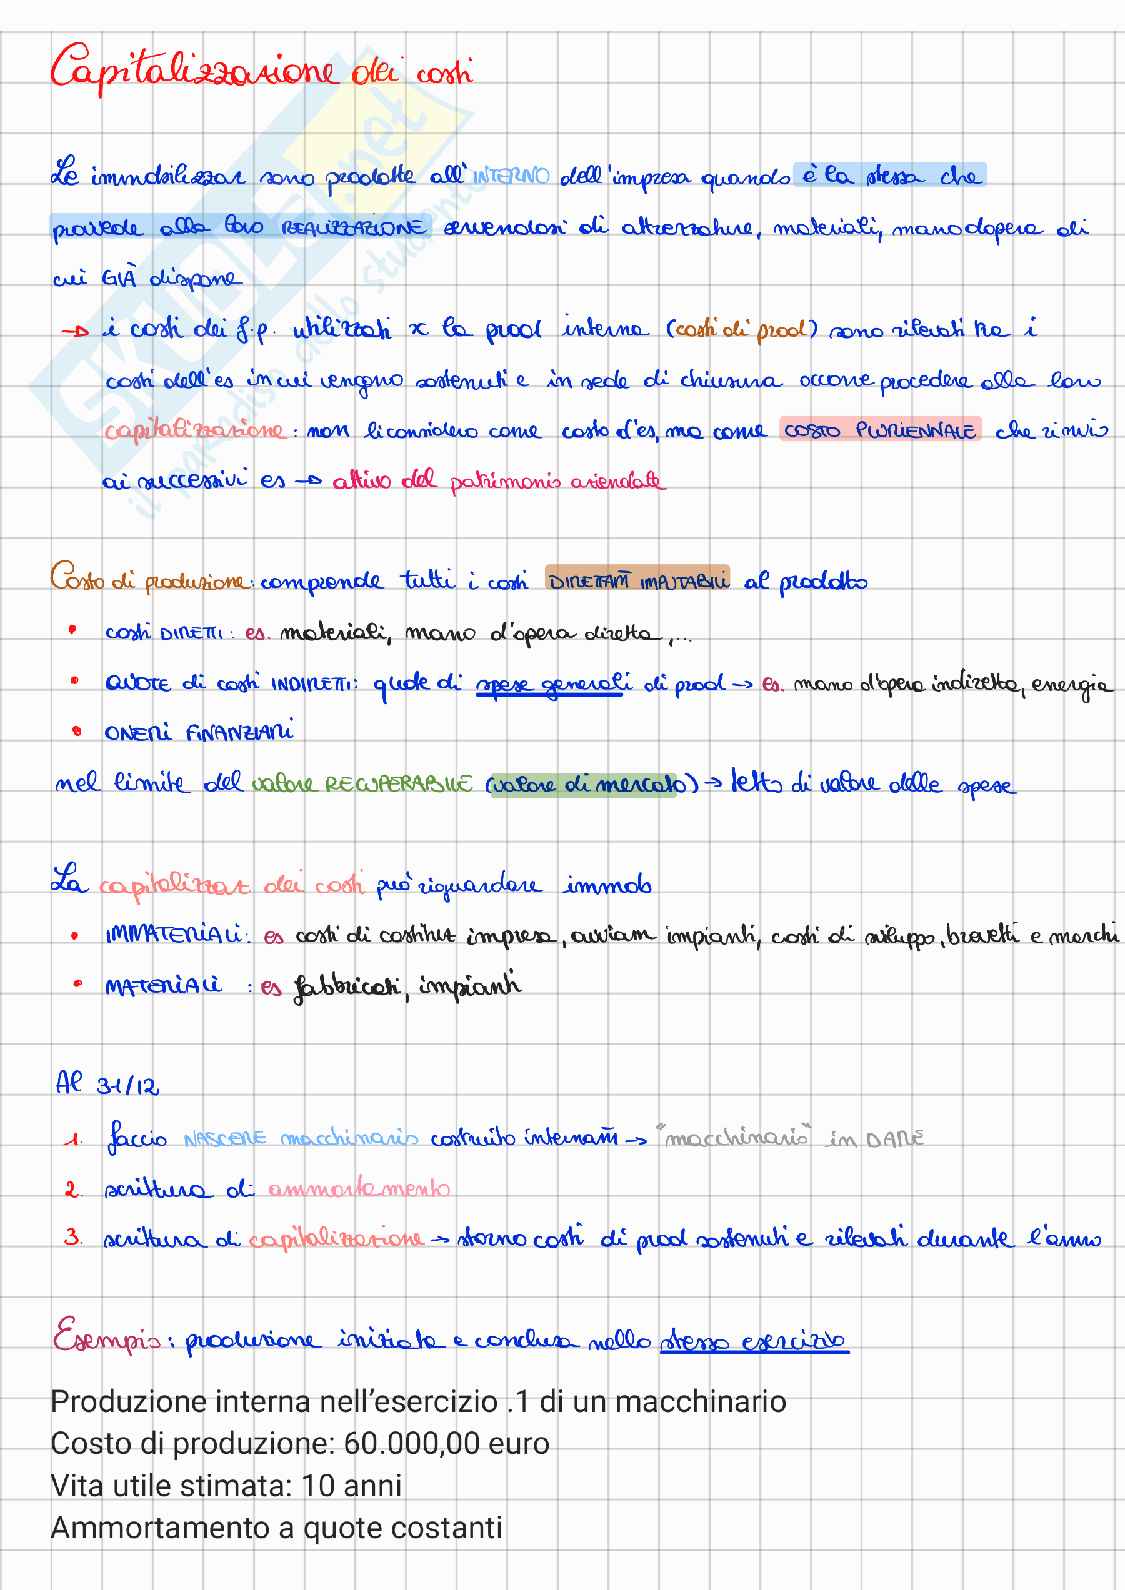 Capitalizzazione dei costi
Le immobilizzaz sono prodotte all'INTERNO dell'impresa quando è la stessa che
provvede alla loro REALIZZAZIONE servendosi di attrezzature, materiali, manodopera di
cui GIÀ dispone
→ i costi dei f.p. utilizzati x la prod interna (costi di prod) sono rilevati tra i
costi dell'es in cui vengono sostenuti e in sede di chiusura occorre procedere alla loro
capitalizzazione: non li considero come costo d'es, ma come COSTO PLURIENNALE che rinvio
ai successivi es → attivo del patrimonio aziendale
Costo di produzione: comprende tutti i costi DIRETTAM IMPUTABILI al prodotto
• costi DIRETTI: es. materiali, mano d'opera diretta,...
• QUOTE di costi INDIRETTI: quote di spese generali di prod → es. mano d'opera indiretta, energia
• ONERI FINANZIARI
nel limite del valore RECUPERABILE (valore di mercato) → tetto di valore delle spese
La capitalizzaz dei costi può riguardare immob
• IMMATERIALI: es costi di costituz impresa, avviam impianti, costi di sviluppo, brevetti e marchi
• MATERIALI : es fabbricati, impianti
Al 31/12
1. faccio NASCERE macchinario costruito internam → "macchinario" in DARE
2. scrittura di ammortamento
3. scrittura di capitalizzazione → storno costi di prod sostenuti e rilevati durante l'anno
Esempio: produzione iniziata e conclusa nello stesso esercizio
Produzione interna nell'esercizio .1 di un macchinario
Costo di produzione: 60.000,00 euro
Vita utile stimata: 10 anni
Ammortamento a quote costanti